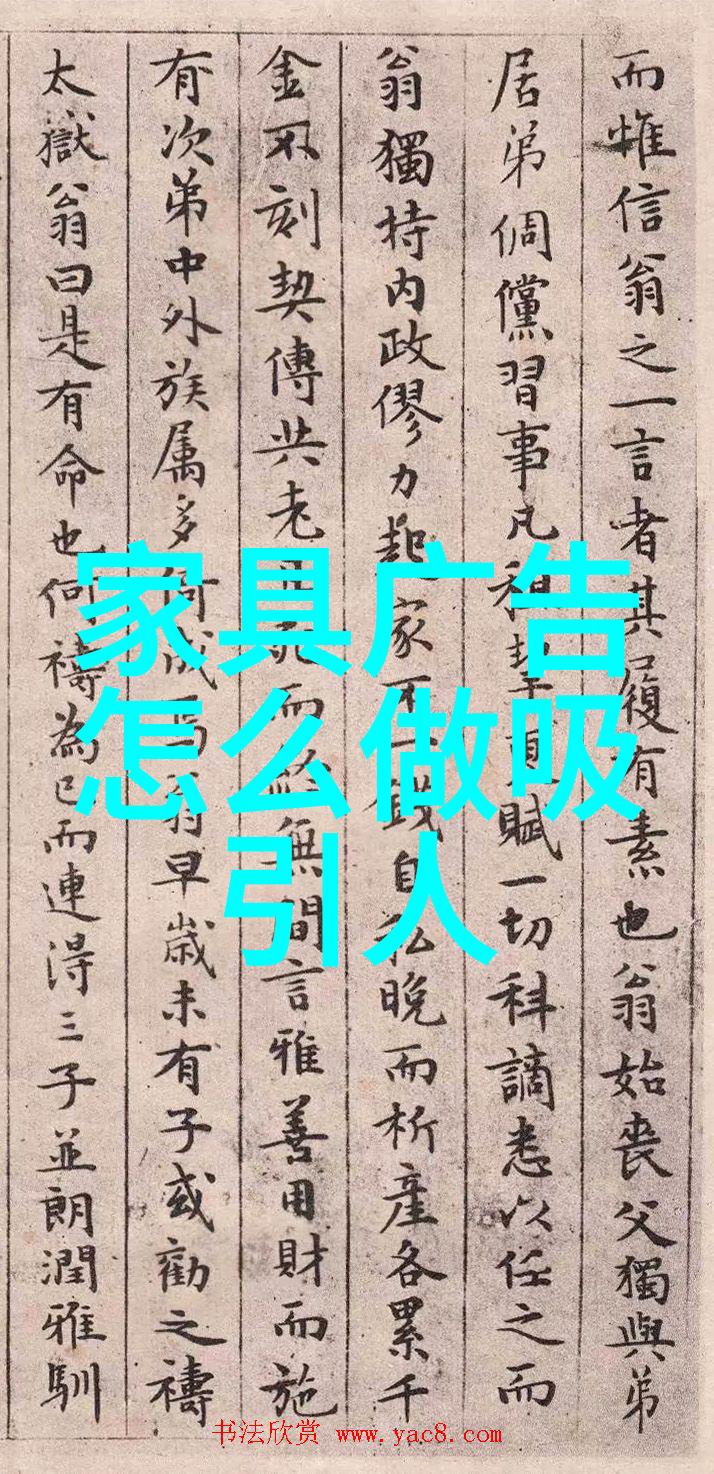 而惟信翁之一言者其履有素也翁始丧父獨與弟
居弟倜儻習事凡租挈更賦一切科謫悉以任之而
翁獨持内政僇力起家不一錢自私晚而析產各累千
金不刻契傳共老且死而終無間言雅善用財而施
有次弟中外族属多倚成焉翁早歲未有子或勸之禱
太嶽翁曰是有命也何禱為已而連得三子並朗潤雅馴
家具广告
怎么做吸
引人
书法欣赏 www.yac8.com